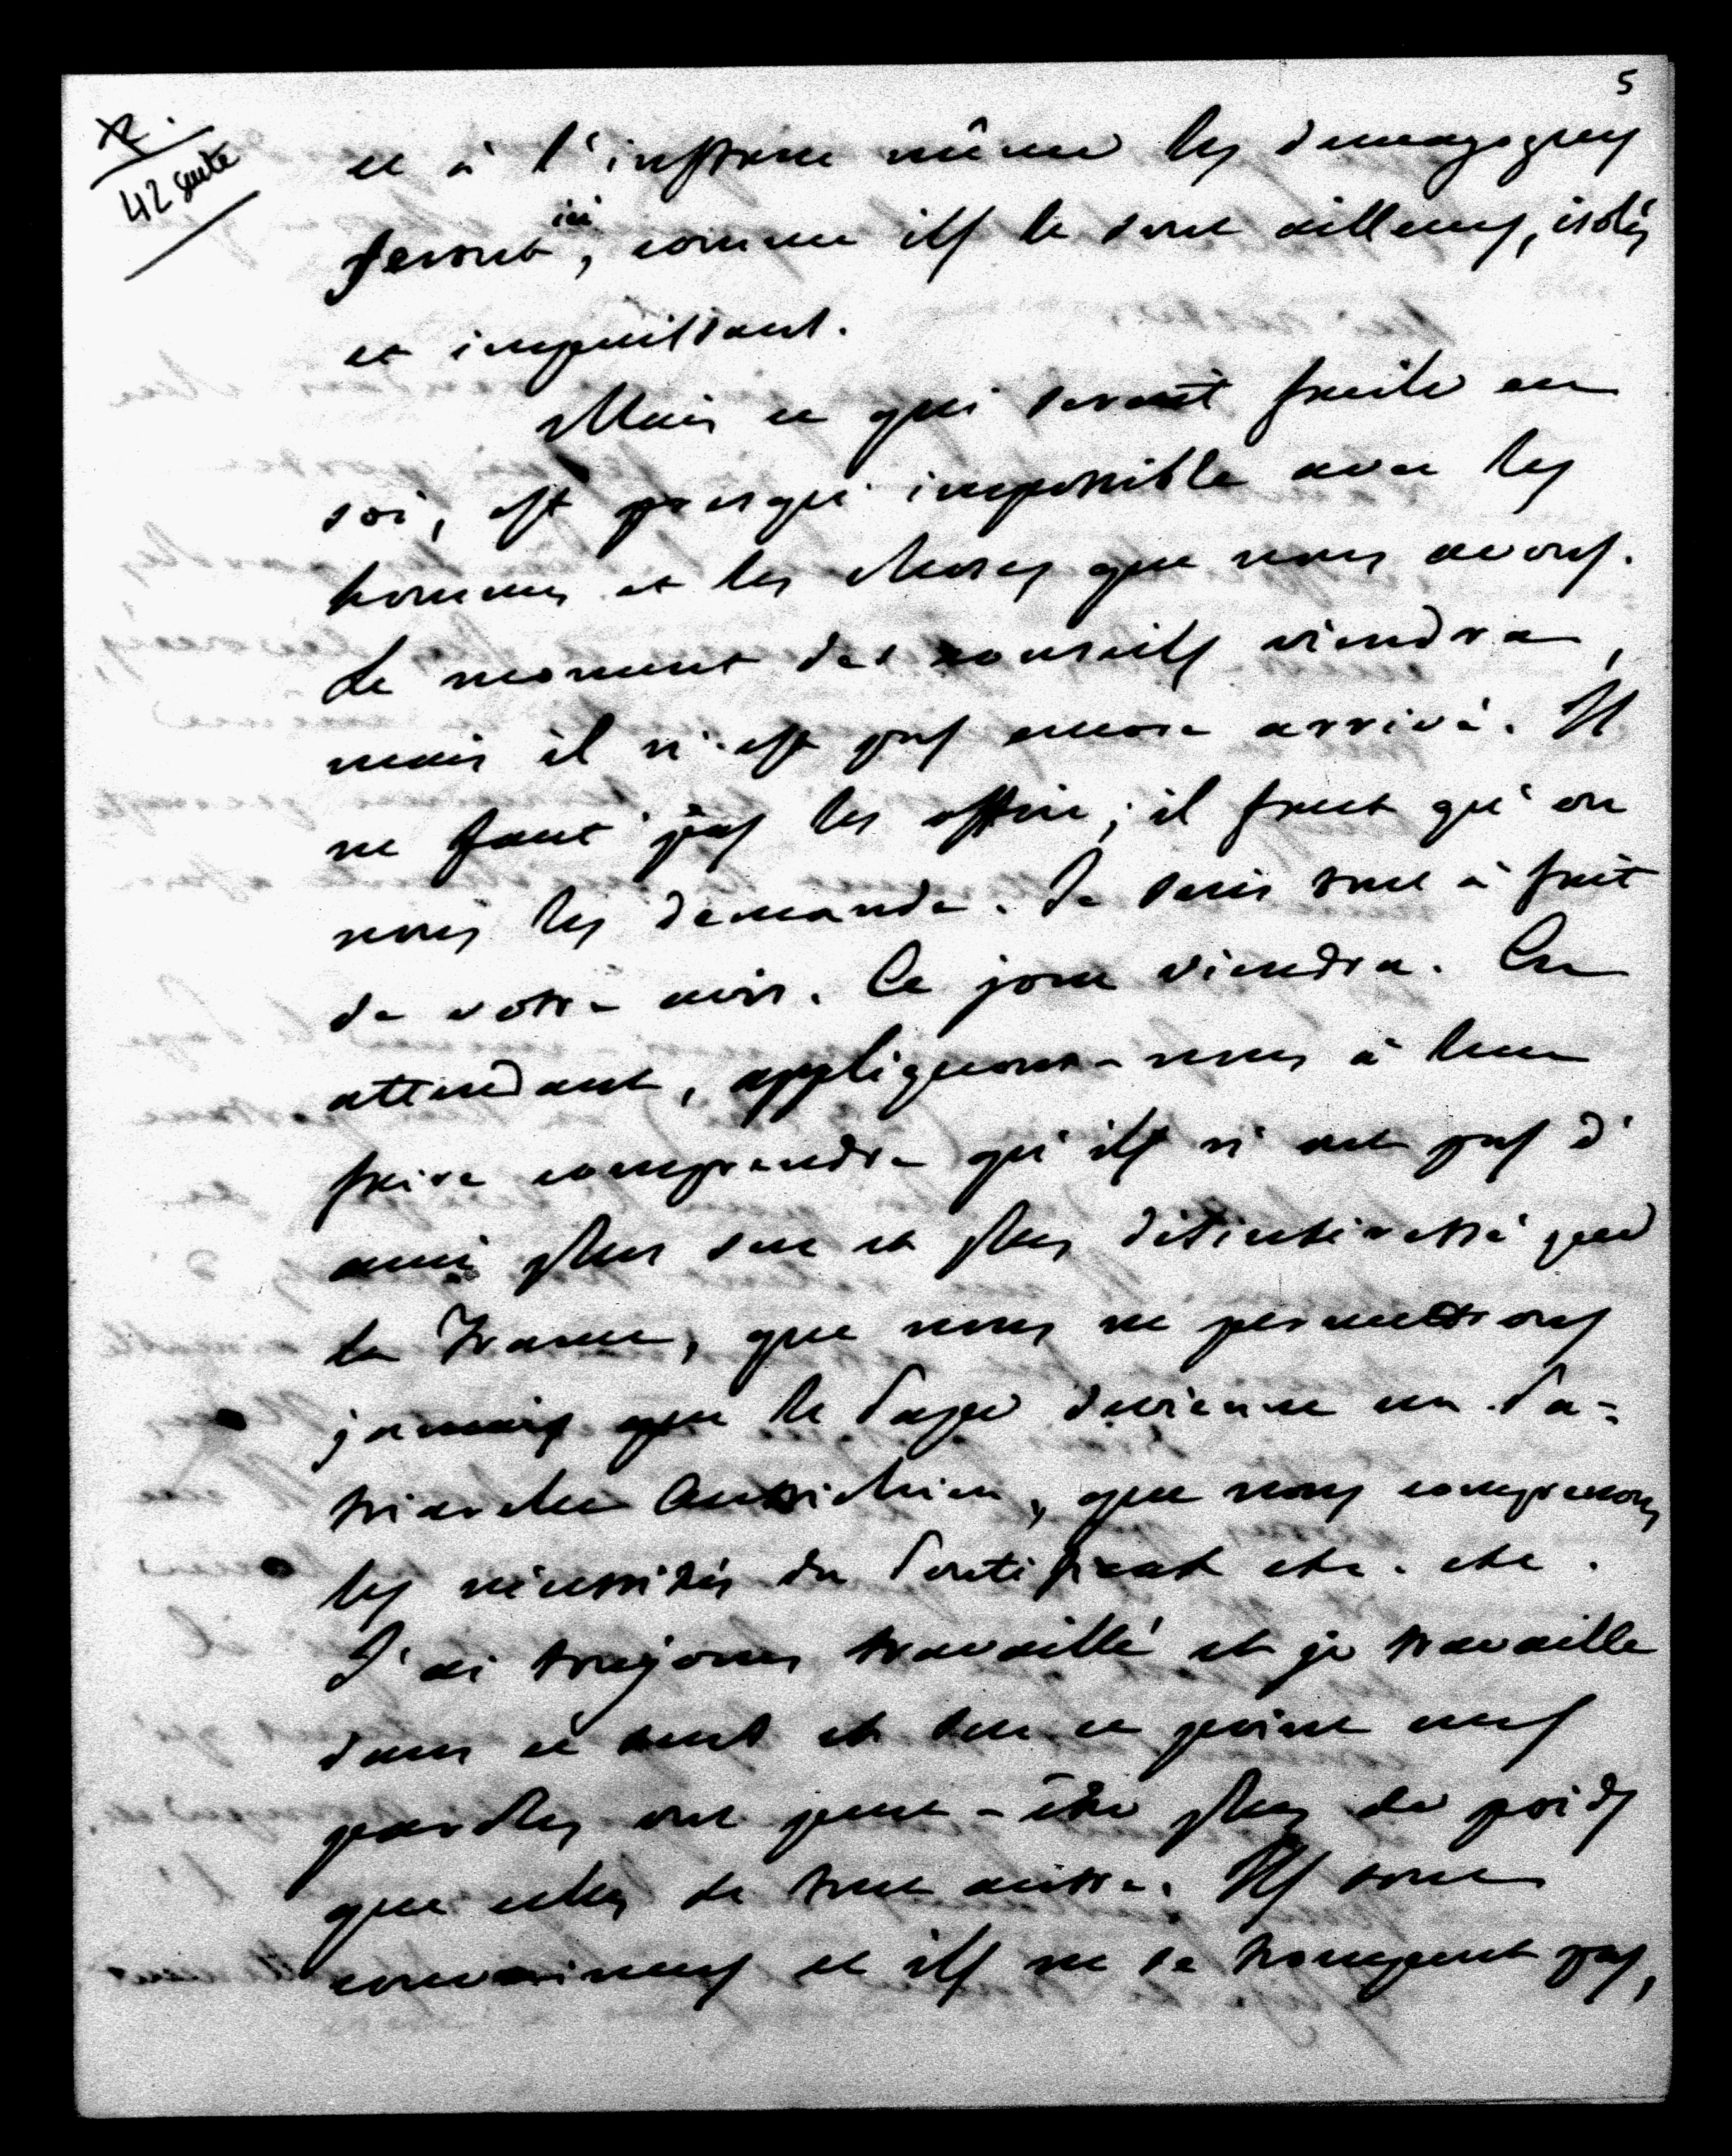 5
42 suite
et à l'instant même les démagogues
seront ici, comme ils le sont ailleurs, isolés
et impuissants.
Mais ce qui serait facile en
soi, est presqu'impossible avec les
hommes et les choses que nous avons.
Le moment des conseils viendra,
mais il n'est pas encore arrivé. Il
ne faut pas les offrir; il faut qu'on
nous les demande. Je suis tout à fait
de votre avis. Ce jour viendra. En
attendant, appliquons-nous à leur
faire comprendre qu'ils n'ont pas d'
ami plus sur et plus désintéressé que
la France, que nous ne permettrons
jamais que le Pape devienne un Pa-
triarche Autrichien, que nous comprenons
les nécessités du Pontificat etc. etc.
J'ai toujours travaillé et je travaille
dans ce sens et sur ce point mes
paroles ont peut-être plus de poids
que celles de tout autre. Ils sont
convaincus et ils ne se trompent pas,